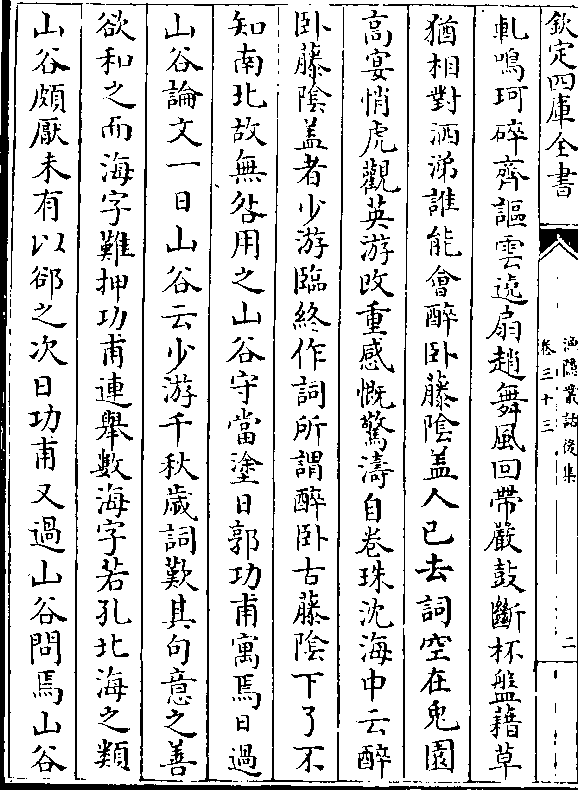 欽定四庫全書
漁隱叢話後集
卷三十三
二
軋鳴珂碎齊謳雲遶扇趙舞風回帶嚴鼓斷杯盤藉草
猶相對洒涕誰能會醉卧藤陰盖人已去詞空在兔園
高宴悄虎觀英游改重感慨驚濤自卷珠沈海中云醉
卧藤陰盖者少游臨終作詞所謂醉卧古藤陰下了不
知南北故無咎用之山谷守當塗日郭功甫寓焉日過
山谷論文一日山谷云少游千秋歲詞歎其句意之善
欲和之而海字難押功甫連舉數海字若孔北海之類
山谷頗厭未有以郤之次日功甫又過山谷問焉山谷